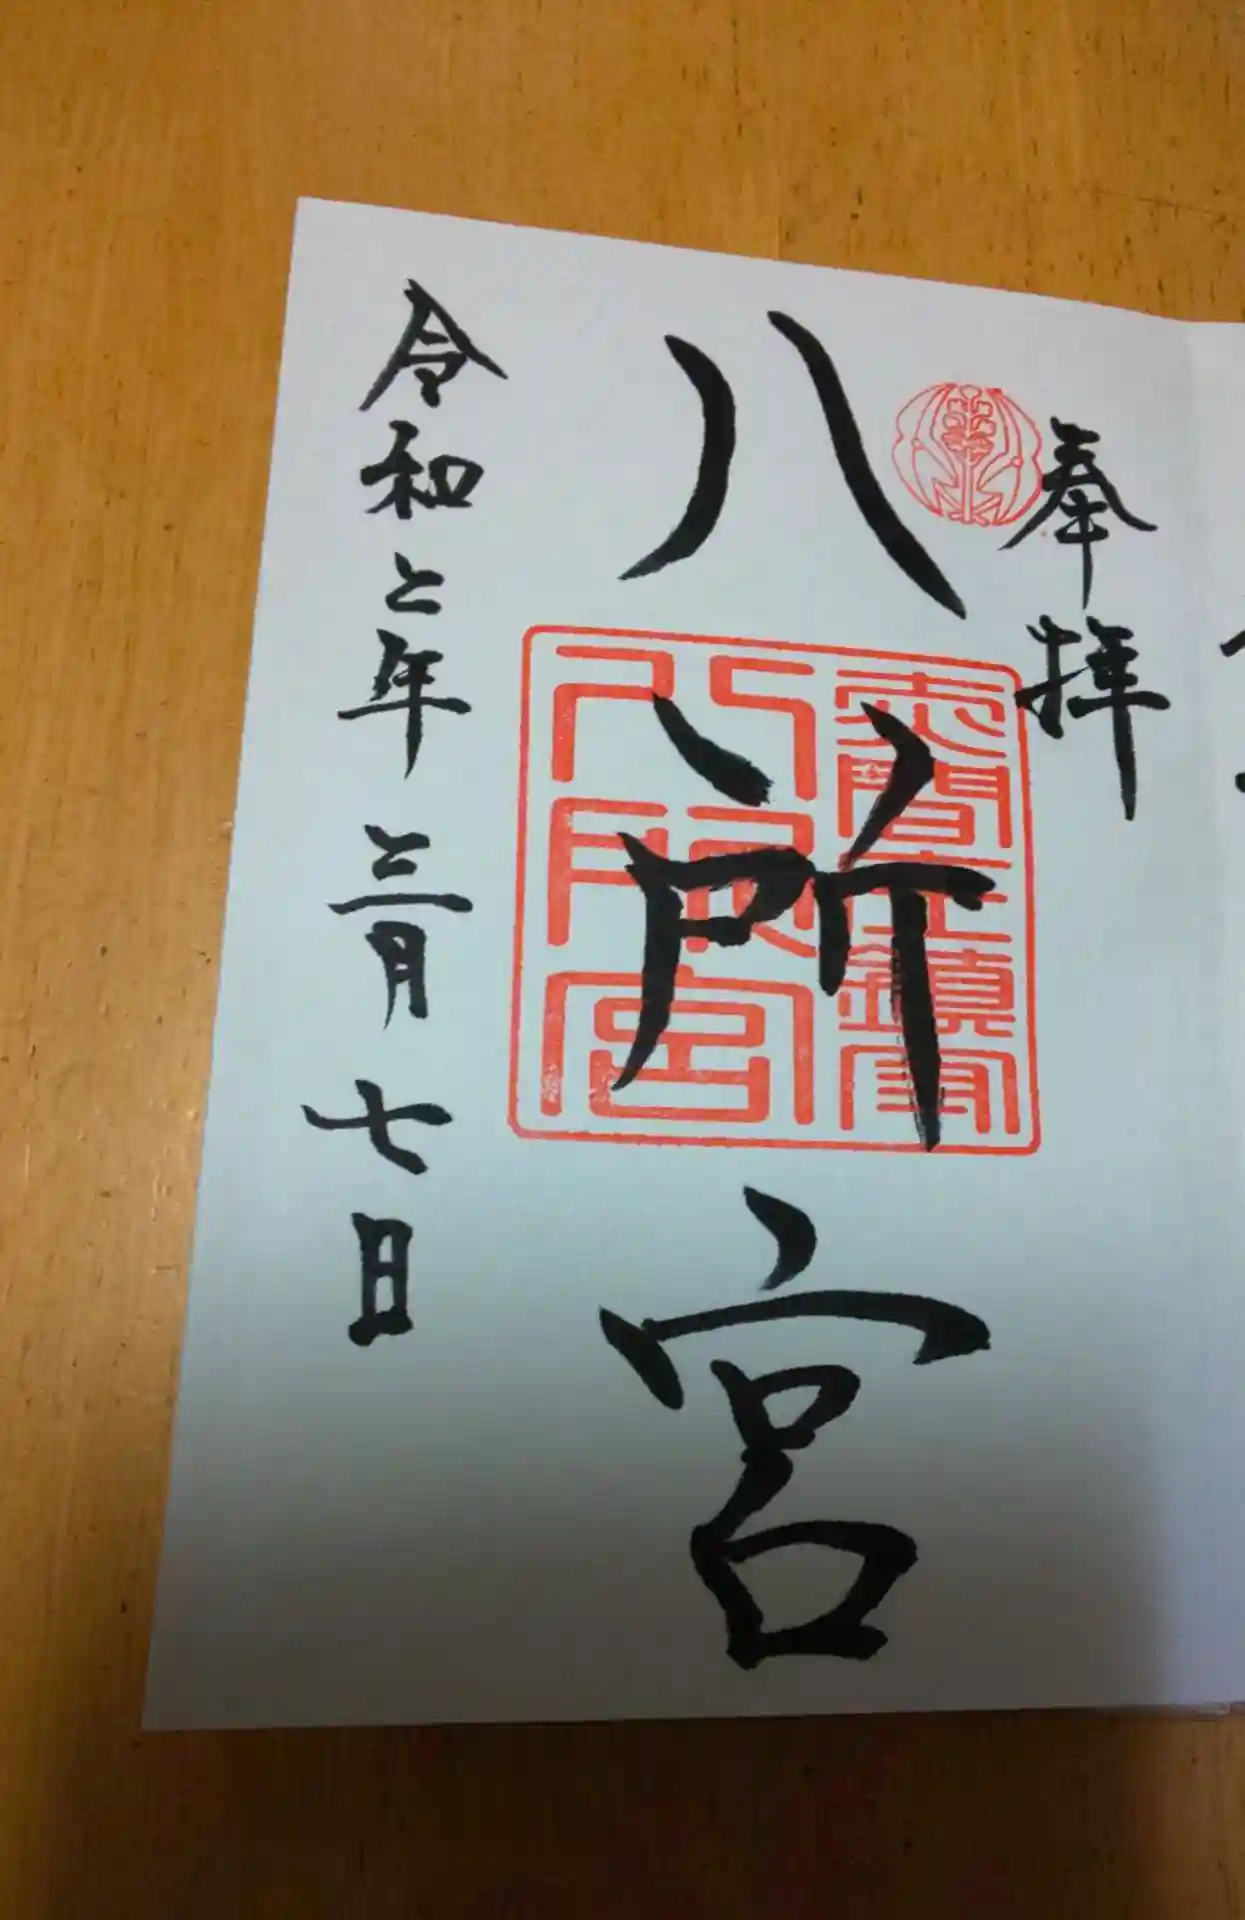 奉拝
赤間庄鎮守
八所宮
八所宮
令和二年三月七日